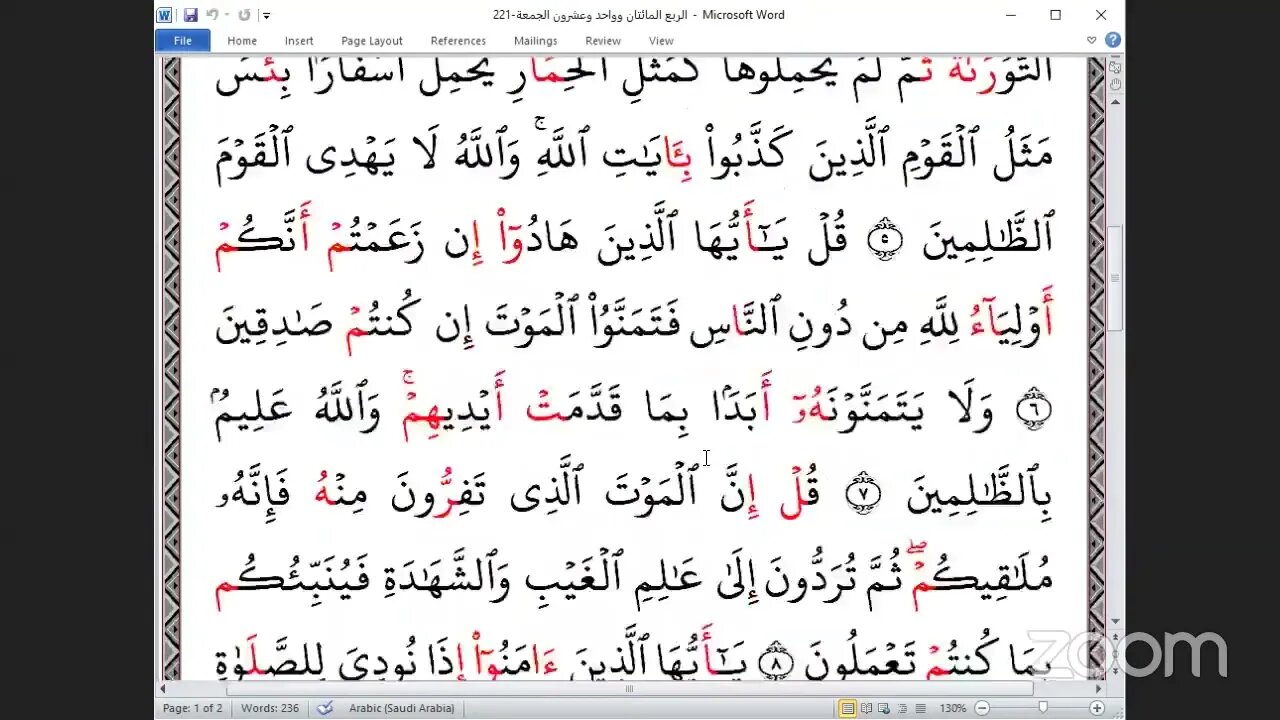 الربع المائتان وواحد وعشرون الجمعة-221 - Microsoft Word
File Home Insert Page Layout References Mailings Review View
ٱلتَّوۡرَىٰةَ ثُمَّ لَمۡ يَحۡمِلُوهَا كَمَثَلِ ٱلۡحِمَارِ يَحۡمِلُ أَسۡفَارَۢا بِئۡسَ
مَثَلُ ٱلۡقَوۡمِ ٱلَّذِينَ كَذَّبُواْ بِـَٔايَٰتِ ٱللَّهِۚ وَٱللَّهُ لَا يَهۡدِى ٱلۡقَوۡمَ
ٱلظَّٰلِمِينَ ٥ قُلۡ يَٰٓأَيُّهَا ٱلَّذِينَ هَادُوٓاْ إِن زَعَمۡتُمۡ أَنَّكُمۡ
أَوۡلِيَآءُ لِلَّهِ مِن دُونِ ٱلنَّاسِ فَتَمَنَّوُاْ ٱلۡمَوۡتَ إِن كُنتُمۡ صَٰدِقِينَ
٦ وَلَا يَتَمَنَّوۡنَهُۥٓ أَبَدَۢا بِمَا قَدَّمَتۡ أَيۡدِيهِمۡۚ وَٱللَّهُ عَلِيمُۢ
بِٱلظَّٰلِمِينَ ٧ قُلۡ إِنَّ ٱلۡمَوۡتَ ٱلَّذِى تَفِرُّونَ مِنۡهُ فَإِنَّهُۥ
مُلَٰقِيكُمۡۖ ثُمَّ تُرَدُّونَ إِلَىٰ عَٰلِمِ ٱلۡغَيۡبِ وَٱلشَّهَٰدَةِ فَيُنَبِّئُكُم
بِمَا كُنتُمۡ تَعۡمَلُونَ ٨ يَٰٓأَيُّهَا ٱلَّذِينَ ءَامَنُوٓاْ إِذَا نُودِىَ لِلصَّلَوٰةِ
zoom
Page: 1 of 2 Words: 236 Arabic (Saudi Arabia) 130%